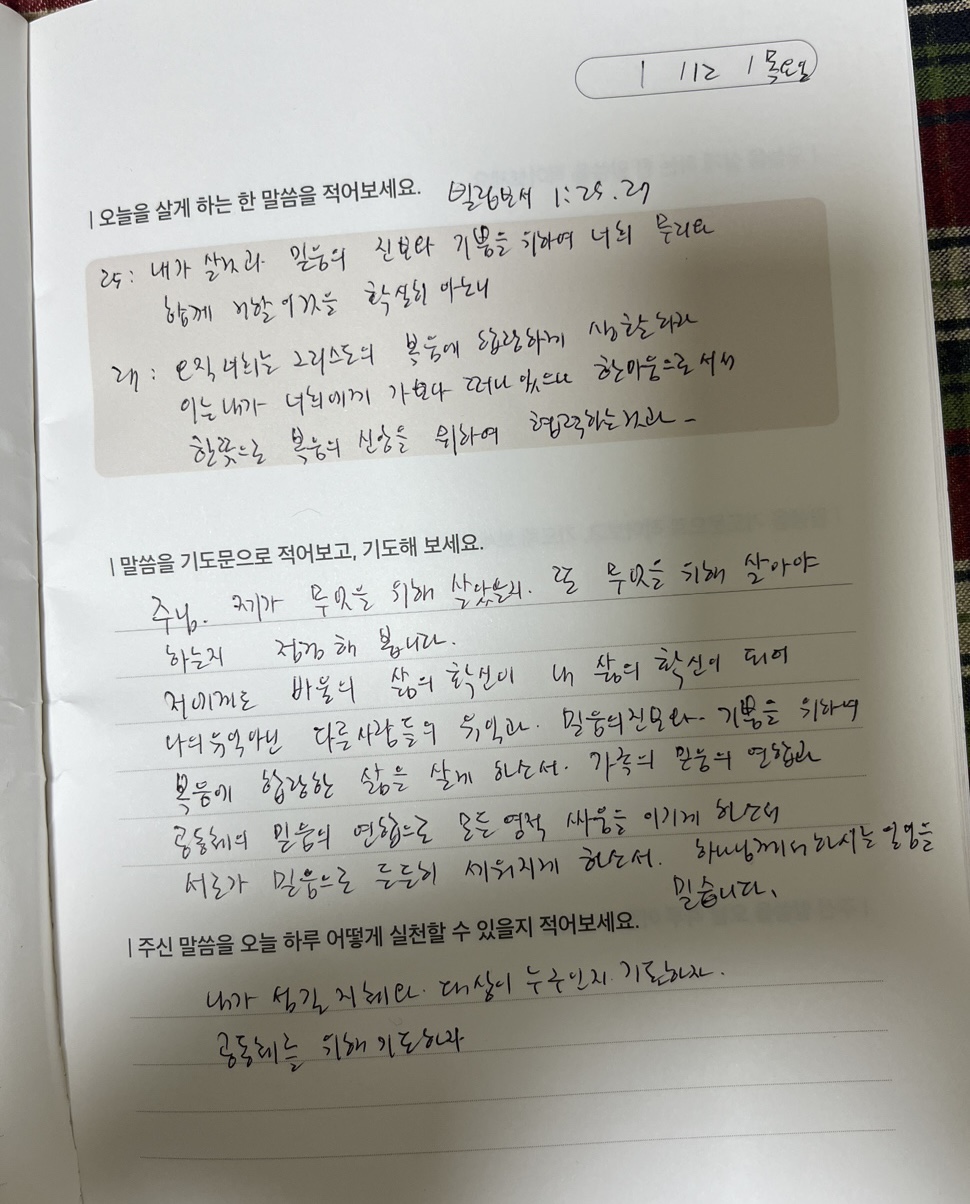 1 / 12 / 목요일
오늘을 살게 하는 한 말씀을 적어보세요. 빌립보서 1:25.27
25: 내가 살것과 믿음의 진보와 기쁨을 위하여 너희 무리와
함께 거할 이것을 확실히 아노니
27: 오직 너희는 그리스도의 복음에 합당하게 생활하라
이는 내가 너희에게 가보나 떠나 있으나 한마음으로 서서
한뜻으로 복음의 신앙을 위하여 협력하는것과 -
말씀을 기도문으로 적어보고, 기도해 보세요.
주님. 제가 무엇을 위해 살았는지. 또 무엇을 위해 살아야
하는지 점검해 봅니다.
저에게도 바울의 삶의 확신이 내 삶의 확신이 되어
나의 유익아닌 다른사람들의 유익과. 믿음의진보와. 기쁨을 위하여
복음에 합당한 삶을 살게 하소서. 가족의 믿음의 연합과
공동체의 믿음의 연합으로 모든 영적 싸움을 이기게 하소서
서로가 믿음으로 든든히 세워지게 하소서. 하나님께서 하시는 일임을
믿습니다.
주신 말씀을 오늘 하루 어떻게 실천할 수 있을지 적어보세요.
내가 섬길 지체와. 대상이 누구인지. 기도하자.
공동체를 위해 기도하자